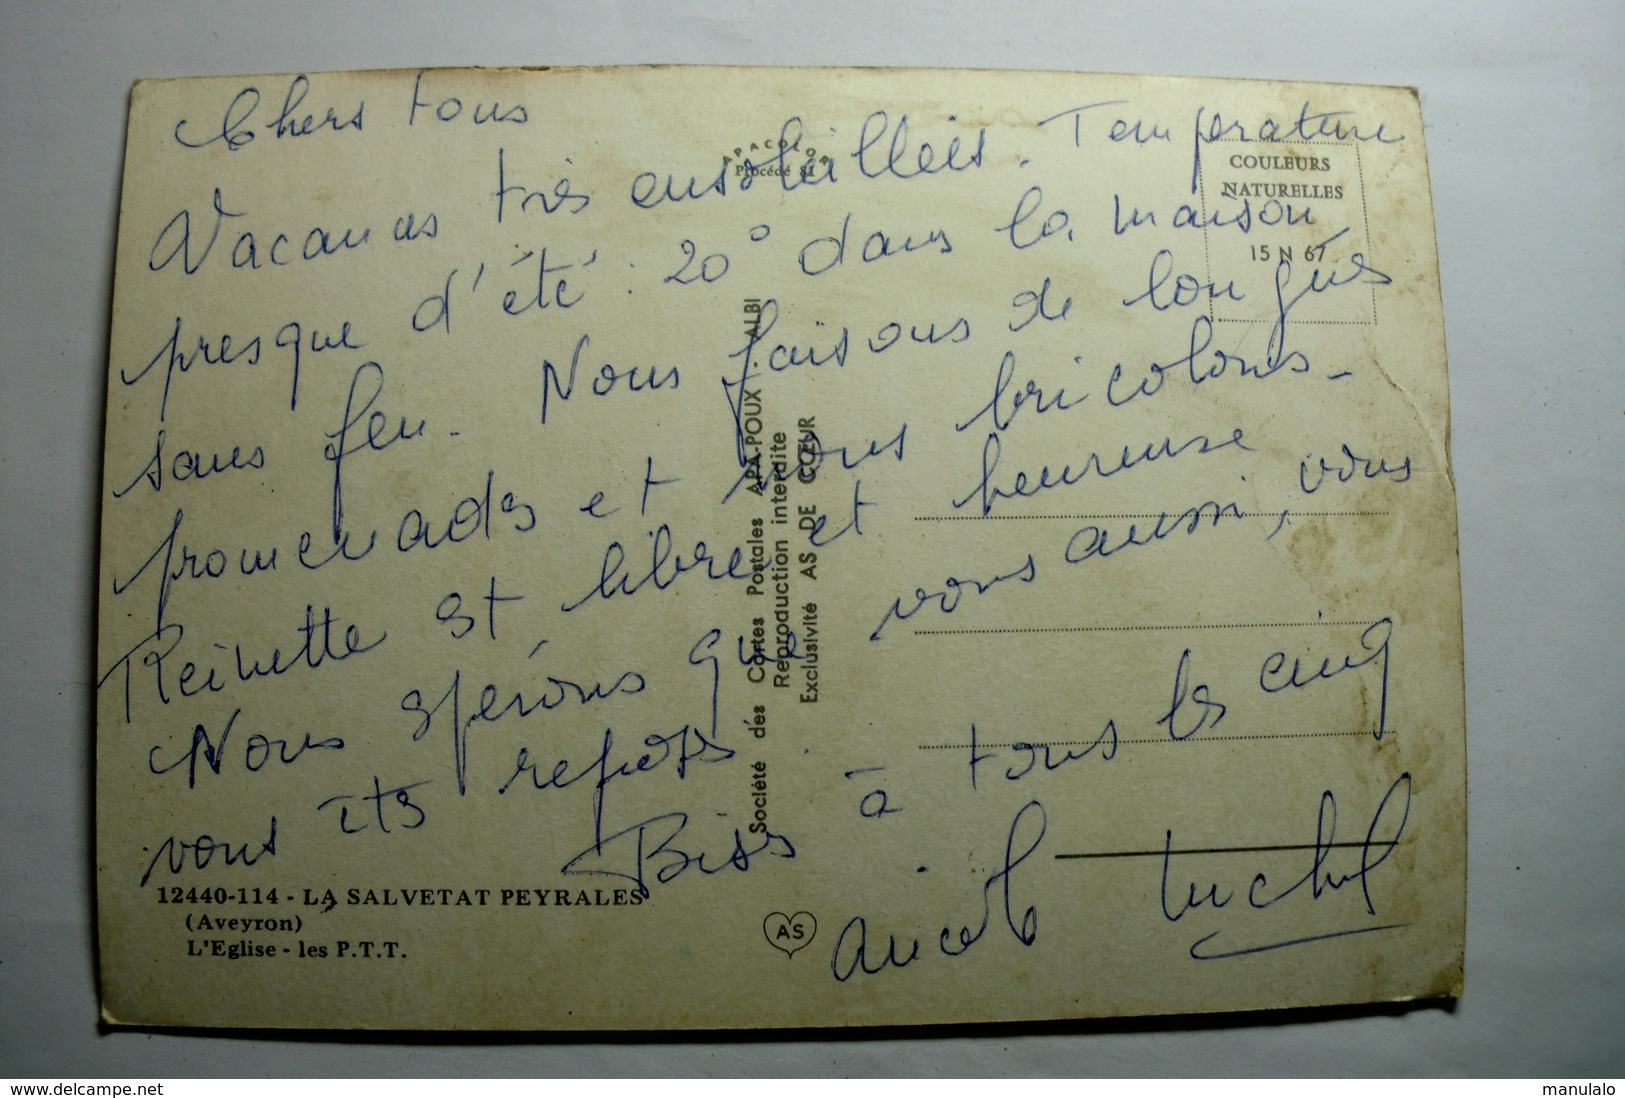 Chers tous
Vacances très ensoleillées. Température
presque d'été : 20° dans la maison
sans feu. Nous faisons de longues
promenades et nous bricolons.
Reinette est libre et heureuse
Nous espérons que vous aussi, vous
vous êtes reposés.
Bises à tous les cinq
Michel
APACOLOR
Procédé 81
COULEURS
NATURELLES
15 N 67
Société des Cartes Postales APA-POUX - ALBI
Reproduction interdite
Exclusivité AS DE CŒUR
12440-114 - LA SALVETAT PEYRALES
(Aveyron)
L'Eglise - les P.T.T.
AS
www.delcampe.net
manulalo